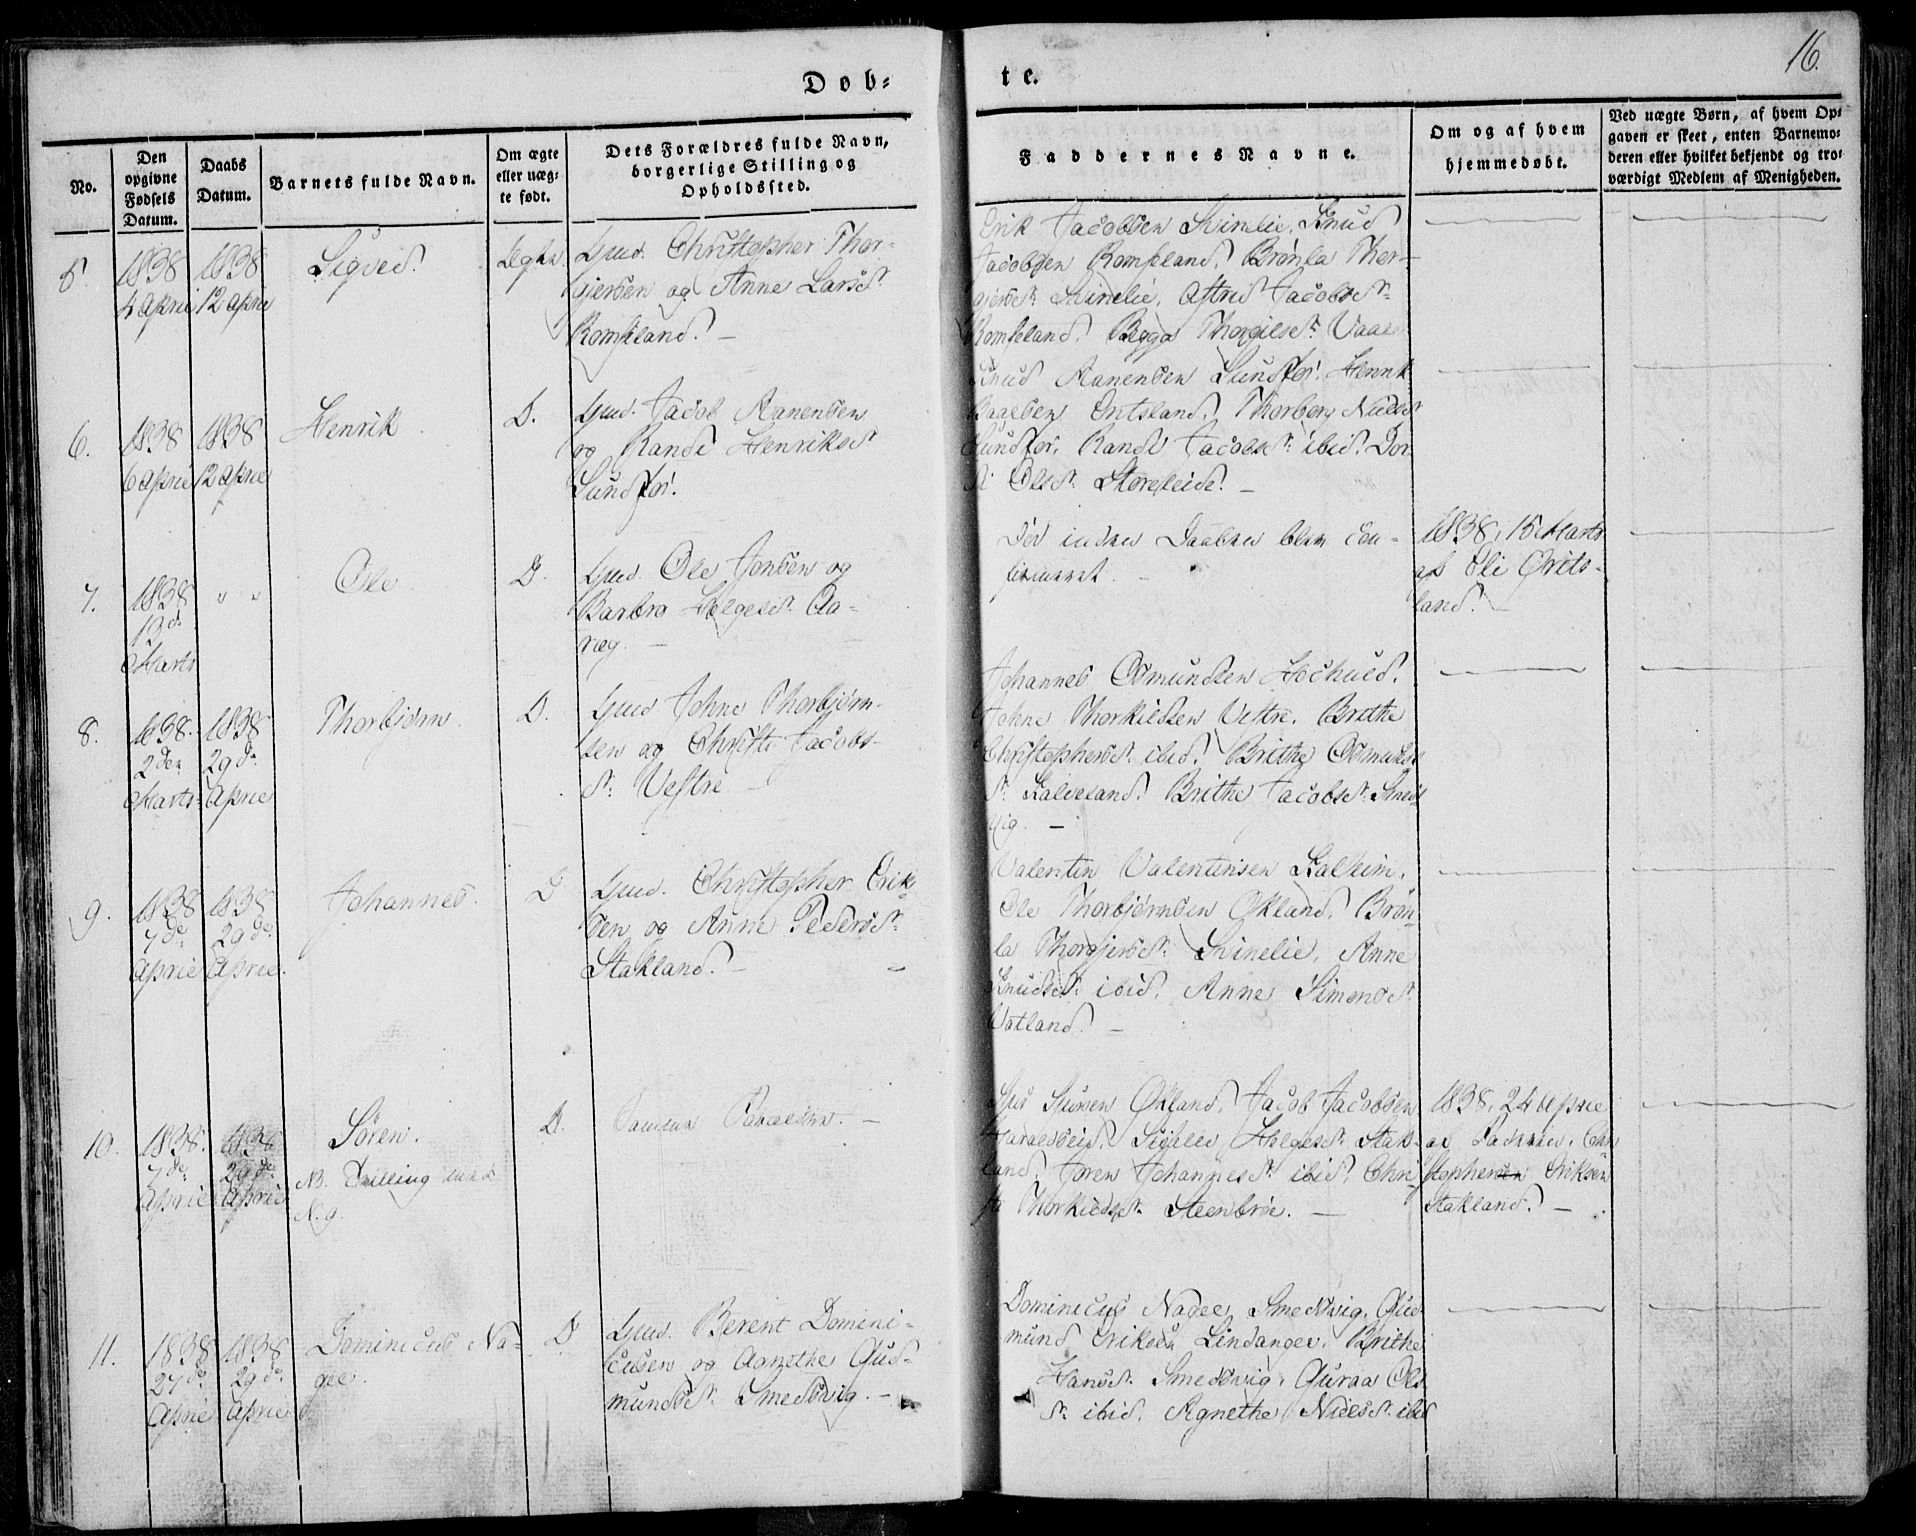 16.
Døb=
te.
No.
Den opgivne Fødsels Datum.
Daabs Datum.
Barnets fulde Navn.
Om ægte eller uægte født.
Dets Forældres fulde Navn, borgerlige Stilling og Opholdssted.
Faddernes Navne.
Om og af hvem hjemmedøbt.
Ved uægte Børn, af hvem Opgaven er skeet, enten Barnemoderen eller hvilket bekjendt og troværdigt Medlem af Menigheden.
5.
1838
4 April
1838
12 April
Sigved.
Ægte.
Gmd. Christopher Thor-
gjersen og Anne Larsd:
Romseland. —
Erik Jacobsen Svinelie, Knud
Jacobsen Romseland, Brønla Thor-
gjersd: Svinelie, Astrid Jacobsd:
Romseland, Thorgilsd: Vaae
6.
1838
6 April
1838
12 April
Henrik.
D.
Gmd. Jacob Aanensen
og Randi Henriksd:
Sundfør.
Knud Aanensen Sundfør, Henrik
Baaesen Thorberg Nielsd:
Sundfør, Randi Jacobsd: ibid. Dor-
Olsd: Storeleide. —
7.
1838
13 d:
Marts
" "
Ole
D.
Gmd. Ole Jonsen og
Barbro Helgesd: Aa-
reg. —
Død inden Daaben blev con-
firmeret. —
1838, 15 Marts
af Eli Qvits-
land. —
8.
1838.
2 den
Marts
1838
29 d:
April
Thorbjørn.
D.
Gmd Johne Thorbjørn-
sen og Christi Jacobs-
d: Vestre —
Johannes Osmundsen
Johne Thorkildsen Vestre, Brithe
Christophersd: ibid. Brithe Osmunds-
d: Brithe Jacobsd: Smeds-
vig. —
9.
1838
7 de
April
1838
29 de
April.
Johannes.
D
Gmd. Christopher Erik-
sen og Anne Pedersd:
Stakland. —
Valentin Valentinsen
Ole Thorbjørnsen Økland, Brøn-
la Thorgjersd: Svinelie, Anne
Knudsd: ibid. Anne Simonsd:
Vatland. —
10.
1838.
7 de
April
1838
29 de
April
Søren.
NB. Tvilling med
N. 9.
D.
Samme Forældre. —
Sjur Sjursen Økland, Jacob Jacobsen
Sigilie Helgesd: Stak-
land, Joren Johannesd: ibid. Chri-
sti Thorkildsd: Steenbrøe. —
1838, 24 April
af Faderen, Chri-
stopher Eriksen
Stakland. —
11.
1838
27 de
April
1838
29 de
April
Dominicus Na-
gel.
D
Gmd. Berent Domini-
cusen og Agnethe Gud-
mundsd: Smedsvig. —
Dominicus Nagel Smedsvig, Gud-
mund Eriksen Lindanger, Brithe
Hansd: Smedsvig, Guraa Ols-
d: ibid. Agnethe Nielsd: ibid